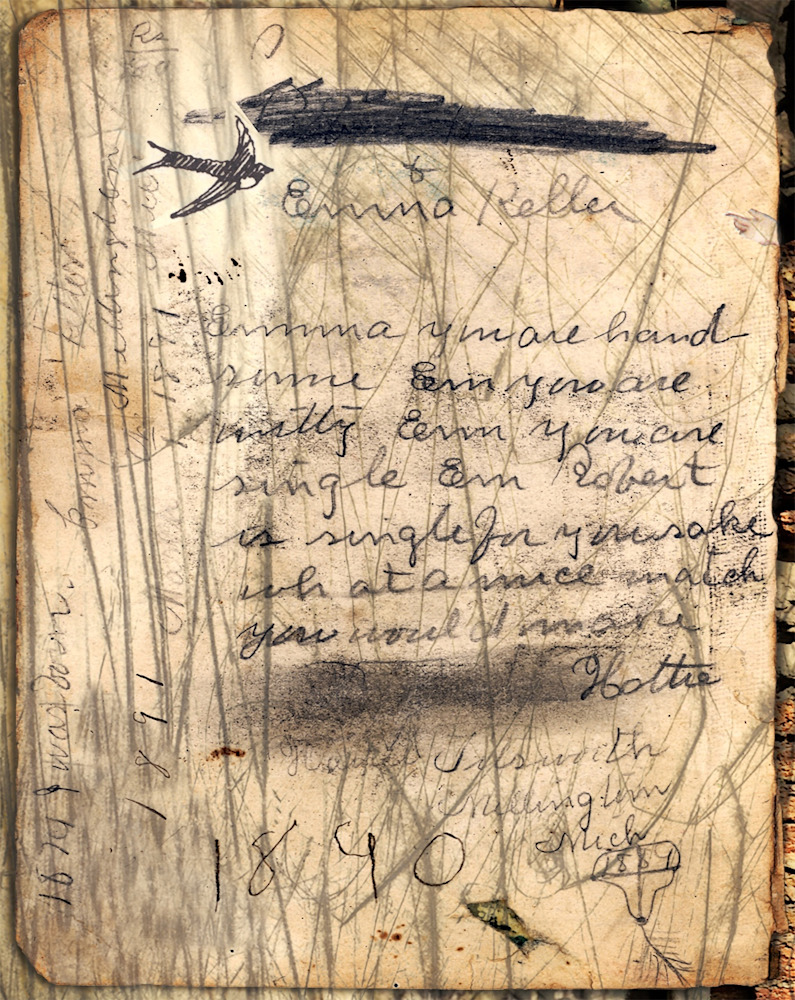 &
Emma Keller
Emma you are hand-
some Em you are
witty Em you are
single Em Robert
is single for you sake
what a nice match
you would make
Hattie
Millington
Mich
1881
1890
1874 I was born.
Emma Keller
Millington Mich
1891
1891